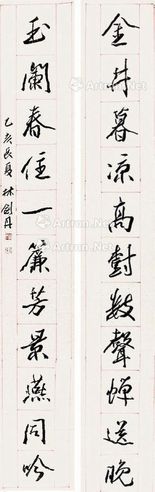 金井暮凉高樹数聲蟬送晚
玉闌春住一簾芳景燕同吟
乙亥長夏 林剑丹